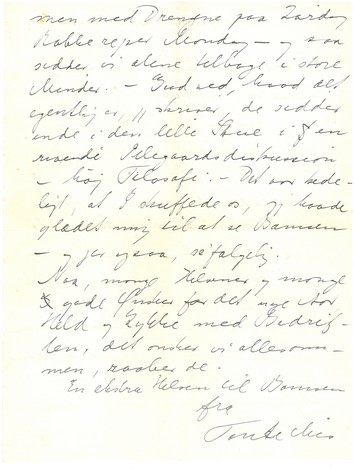 men med Drengene paa Lørdag
rejser Monday – og saa
sidder vi alene tilbage i store
Minder. – Gud ved, hvad det
egentlig er, skriver, de sidder
inde i den lille Stue i en
risende diskussion
– høj Filosofi. – Det var kede-
ligt, at I skuffede os, jeg havde
glædet mig til at se Bamsen
– og jer ogsaa, selfølgelig.
Naa, mange Hilsner og mange
gode Ønsker for det nye Aar
Held og Lykke med Bedrif-
ten, det ønsker vi allesam-
men, raaber de.
En ekstra Hilsen til Bamsen
fra
Tante